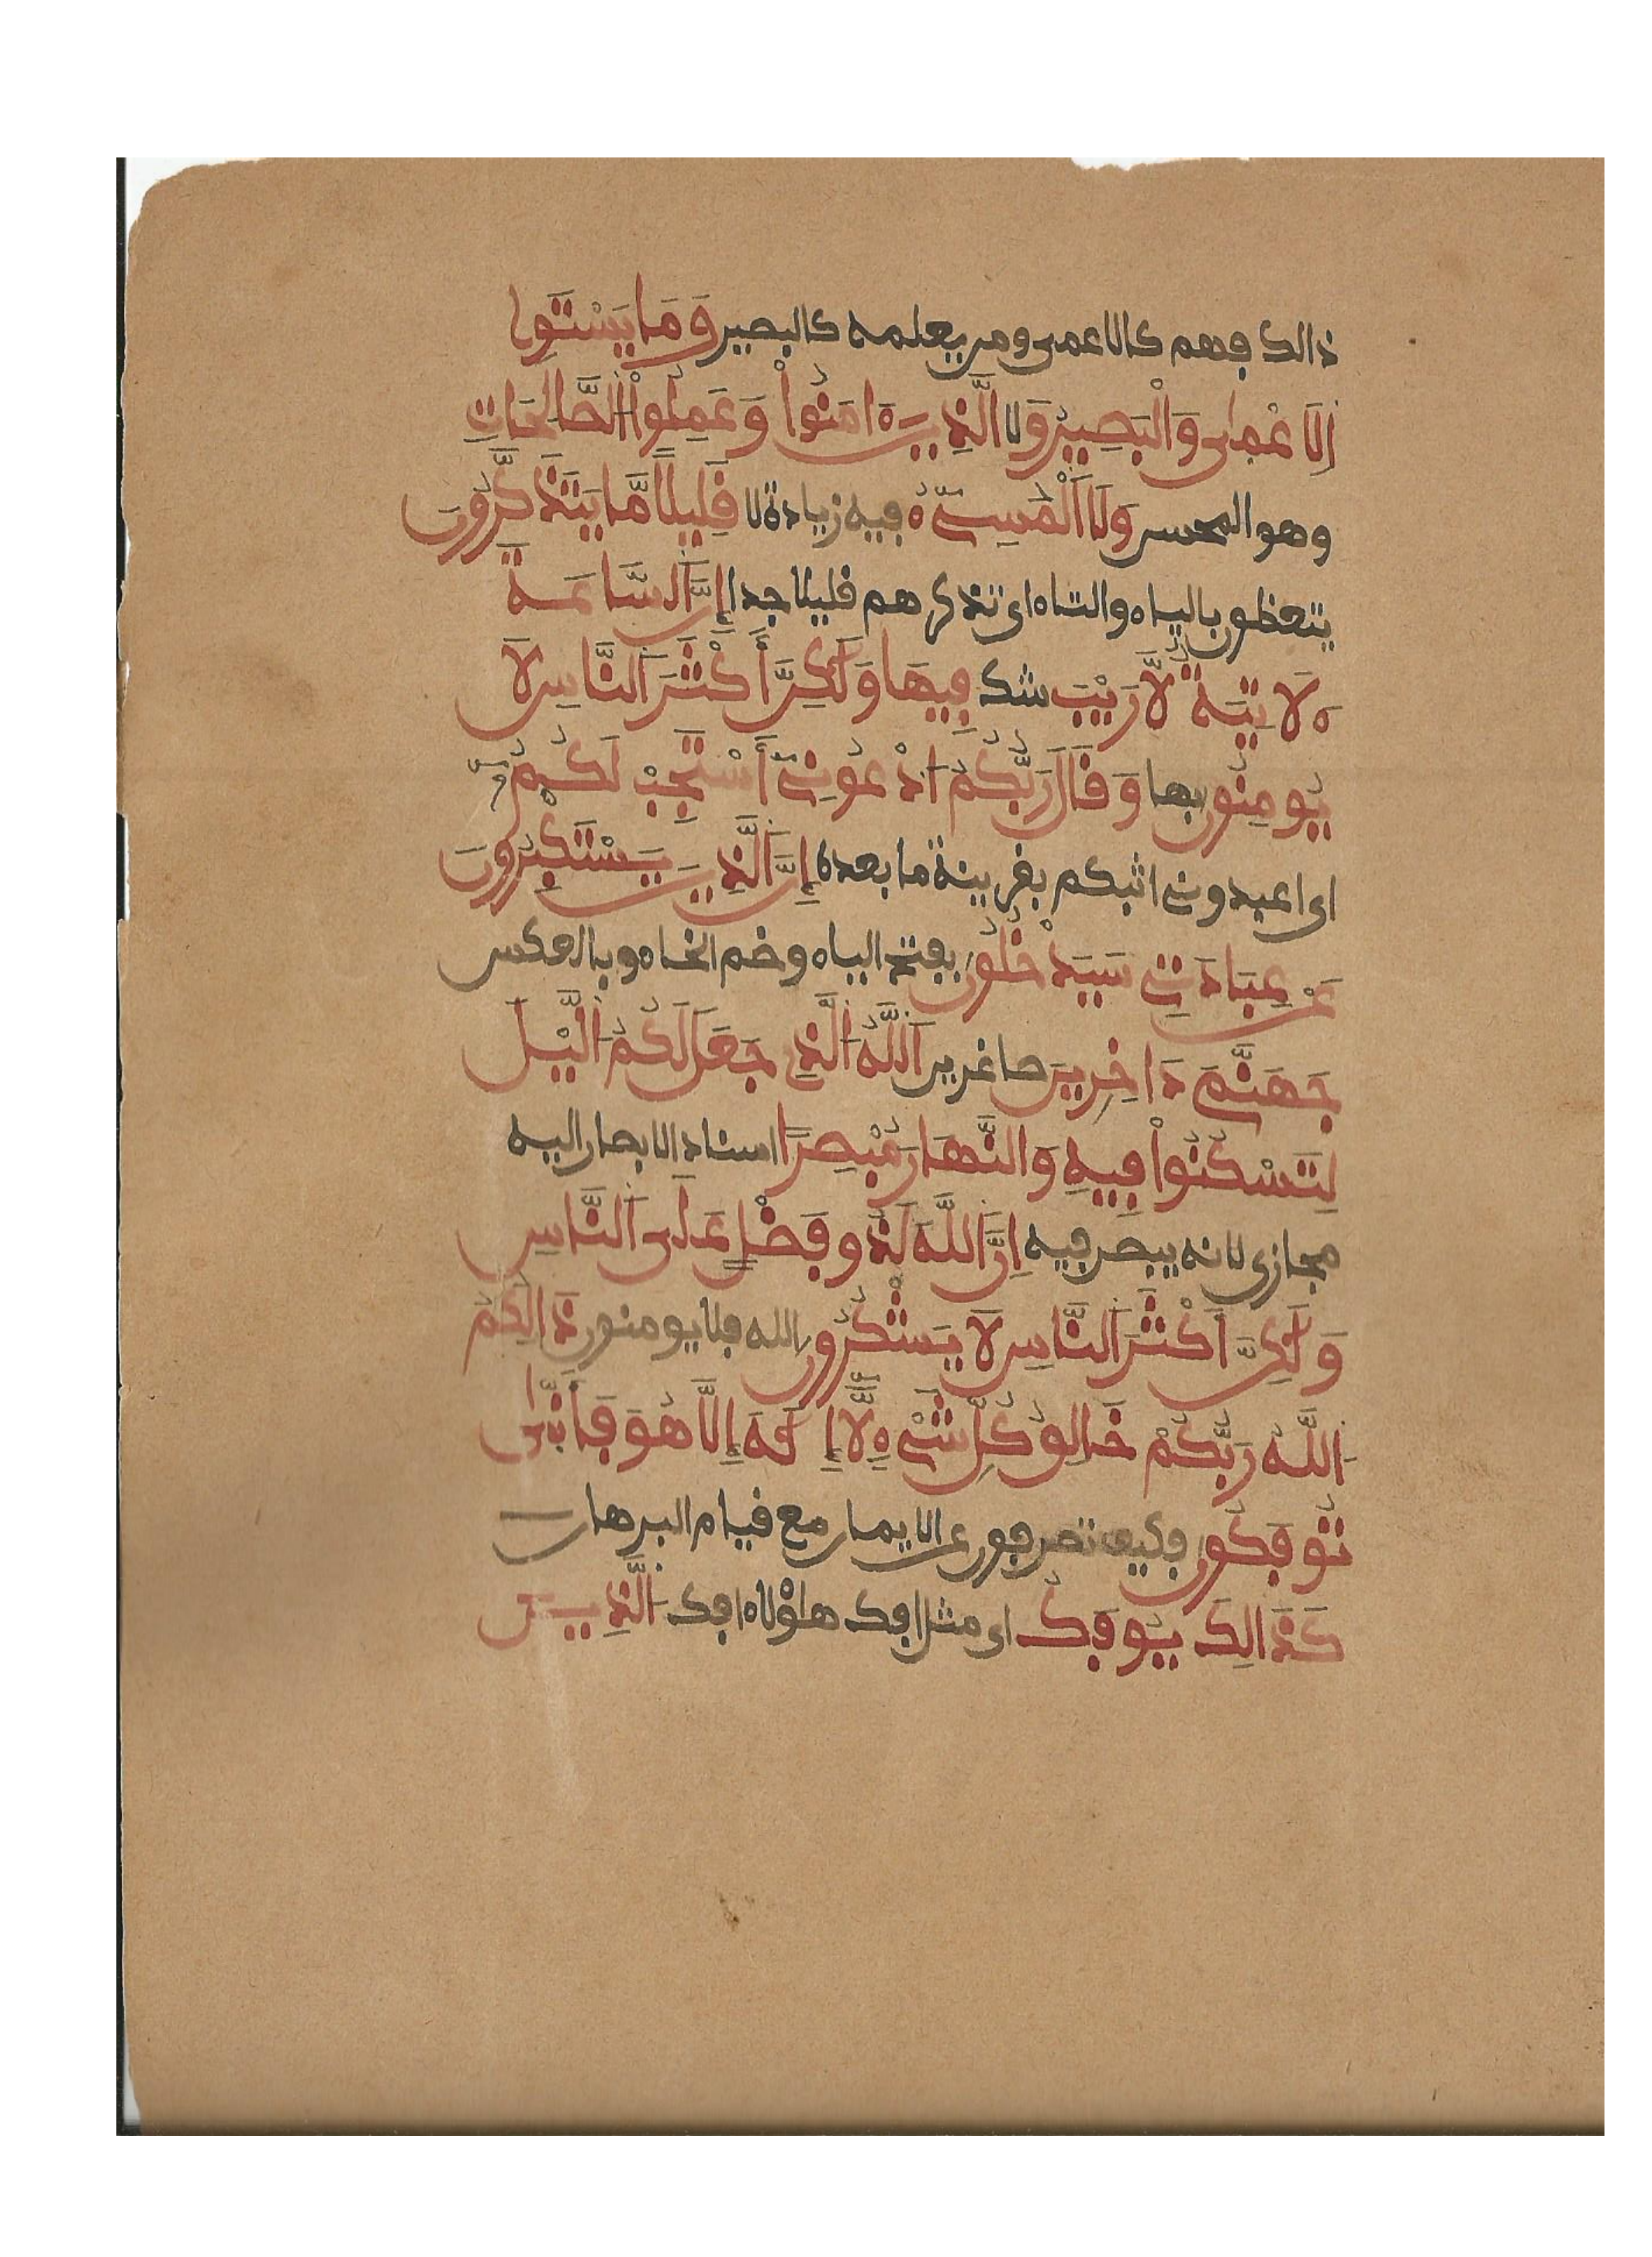 ذالك فهم كالاعمى ومن يعلمه كالبصير وَمَا يَسْتَوِى
اَلَاعْمَىٰ وَالْبَصِيرُ وَلَا الَّذِينَ ءَامَنُواْ وَعَمِلُواْ الصَّالِحَاتِ
وهو المحسن وَلَا اَلْمُسِىٓءُ فيه زيادة لا قَلِيلًا مَّا يَتَذَكَّرُونَ
يتعظون بالياء والتاء اى تذكرهم قليلا جدا إِنَّ اَلسَّاعَةَ
ءَلَاتِيَةٌ لَّا رَيْبَ شك فِيهَا وَلَٰكِنَّ أَكْثَرَ اَلنَّاسِ لَا
يُومِنُونَ بها وَقَالَ رَبُّكُمُ اُدْعُونِىٓ أَسْتَجِبْ لَكُمُۥٓ
اى اعبدونى اثبكم بقرينة ما بعده إِنَّ اَلَّذِينَ يَسْتَكْبِرُونَ
عَنْ عِبَادَتِى سَيَدْخُلُونَ بفتح الياء وضم الخاء وبالعكس
جَهَنَّمَ دَاخِرِينَ صاغرين اَللَّهُ اَلَّذِى جَعَلَ لَكُمُ اُلَّيْلَ
لِتَسْكُنُواْ فِيهِ وَالنَّهَارَ مُبْصِرًا اسناد الابصار اليه
مجازى لانه يبصر فيه إِنَّ اَللَّهَ لَذُو فَضْلٍ عَلَى اَلنَّاسِ
وَلَٰكِنَّ أَكْثَرَ اَلنَّاسِ لَا يَشْكُرُونَ الله فلا يومنون ذَالِكُمُ
اُللَّهُ رَبُّكُمْ خَالِقُ كُلِّ شَىْءٍ لَّآ إِلَٰهَ إِلَّا هُوَ فَأَنَّىٰ
تُوفَكُونَ فكيف تصرفون عن الايمان مع قيام البرهان
كَذَالِكَ يُوفَكُ اى مثل افك هاؤلاء افك اَلَّذِينَ